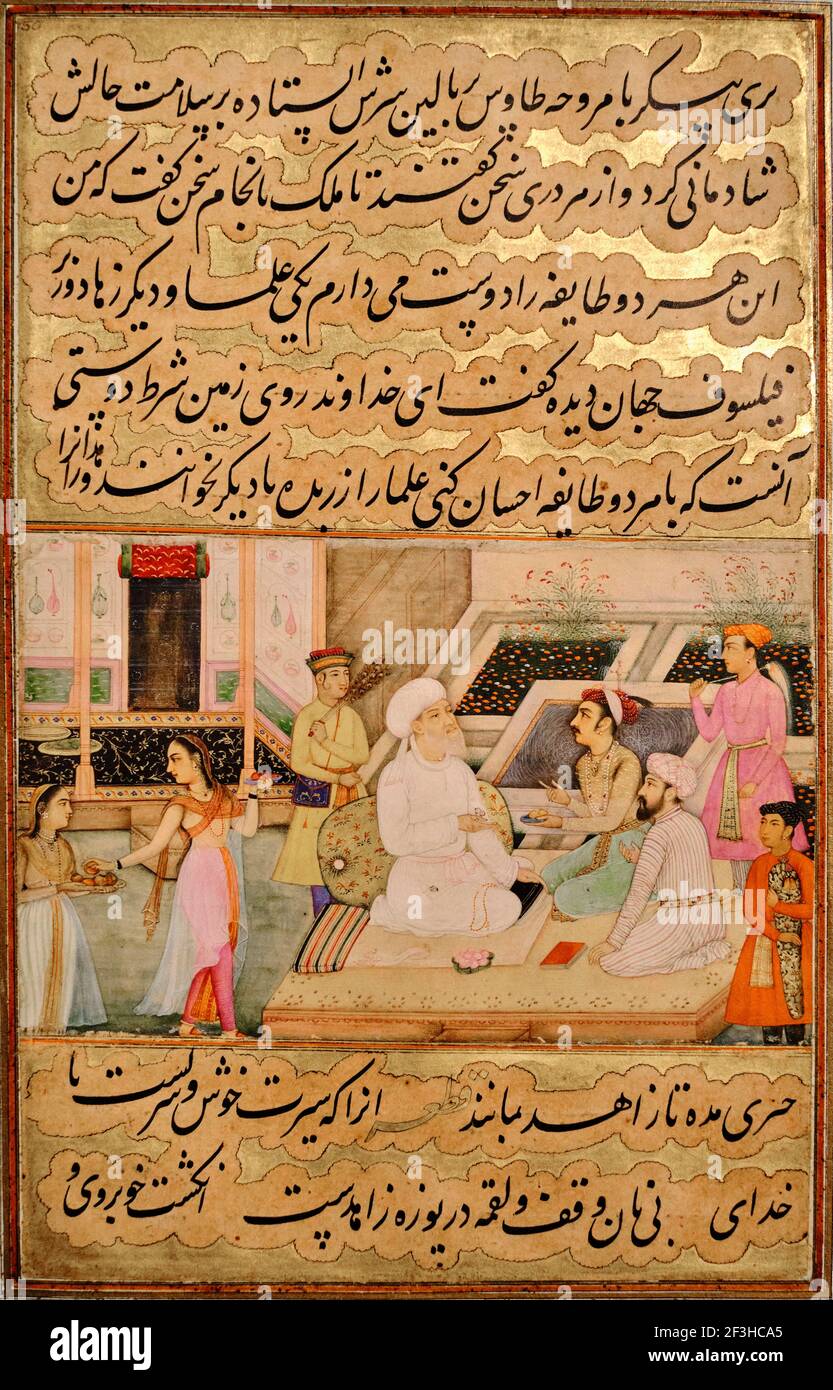 پری پیکر با مروحه طاوس بر بالین سرش ایستاده بر سلامت حالش
شادمانی کرد و از هر دری سخن گفتند تا ملک بانجام سخن گفت که من
این هر دو طایفه را دوست می دارم یکی علما و دیگر زهاد وزیر
فیلسوف جهان دیده گفت ای خداوند روی زمین شرط دوستی
آنست که با هر دو طایفه احسان کنی علما را زر بده تا دیگر بخوانند و زاهدانرا
چیزی مده تا زاهد بمانند قطعه انرا که سیرت خوش و سریست با
خدای بی نان وقف و لقمه دریوزه زاهدست انگشت خوبروی و
alamy
Image ID: 2F3HCA5
www.alamy.com